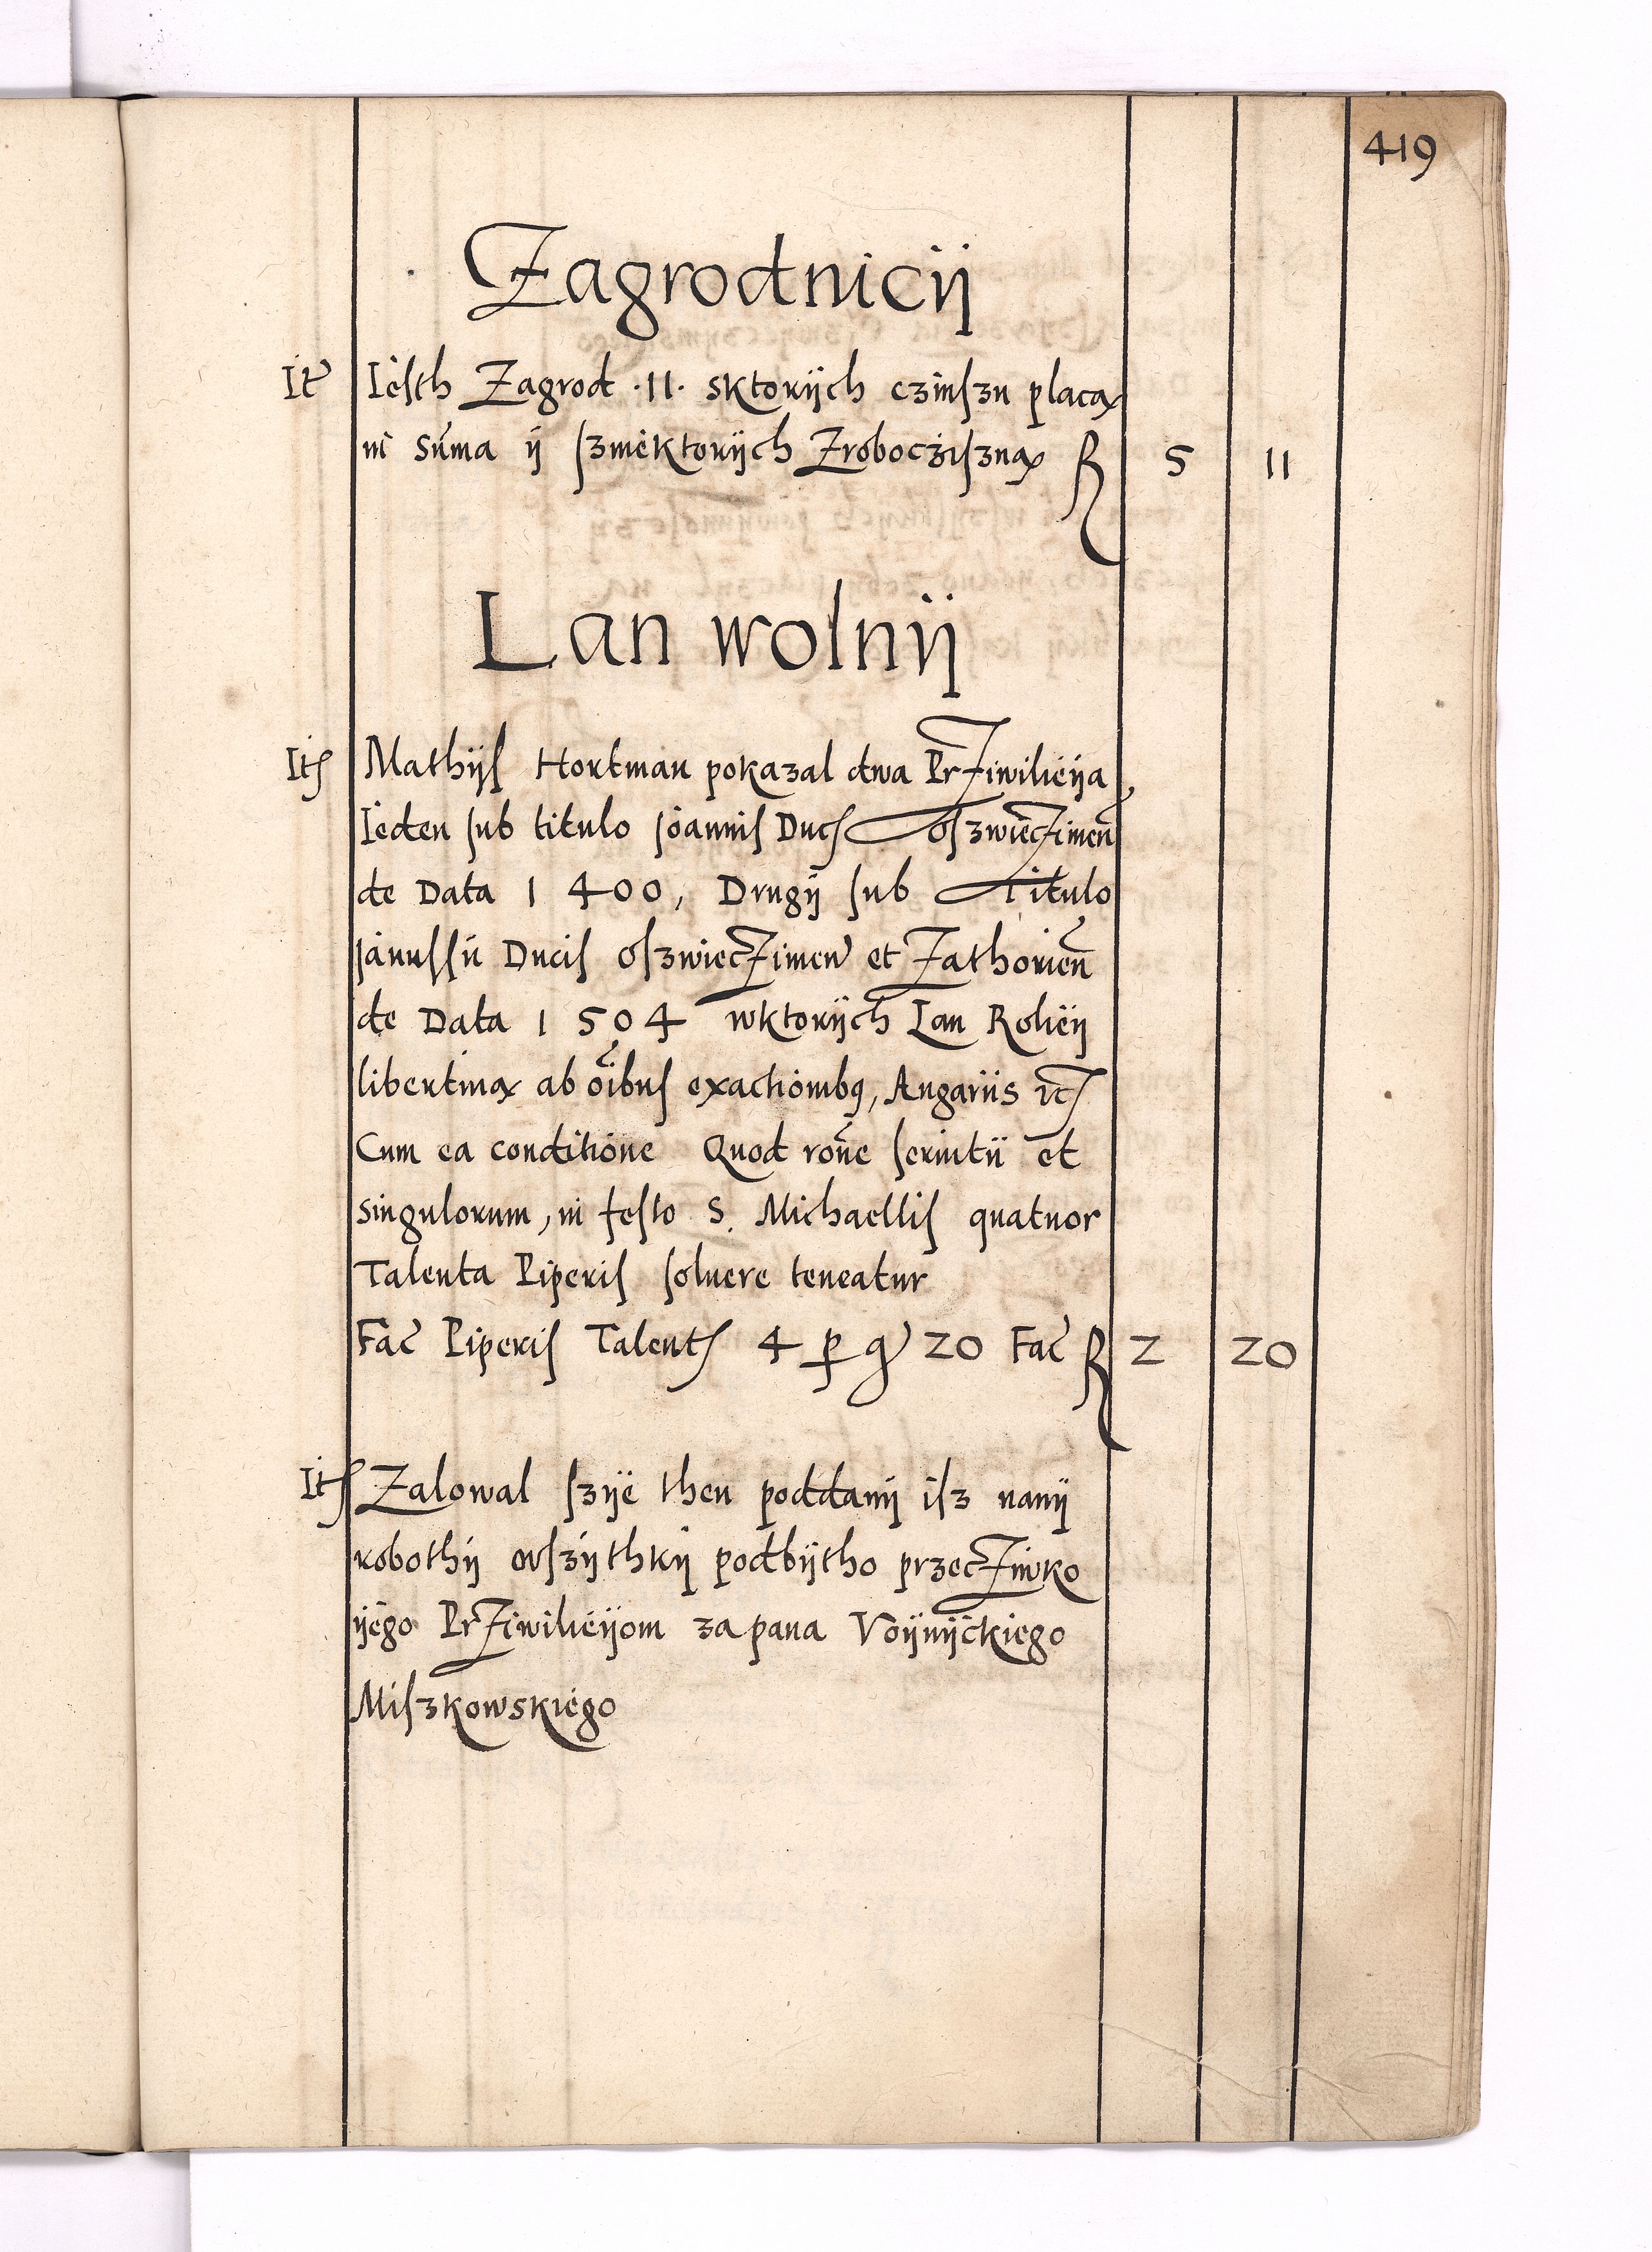 419
Zagrodnicÿ
Itē Iesth Zagrod ·11· sktorÿch czinſzu placą
in Sūma ÿ ſzniektorÿch Zrobocziſzną R 5 11
Lan wolnÿ
Itꝭ Mathÿſ Hortman pokazal dwa PrZiwilieÿa,
Ieden ſub titulo joannis Ducꝭ oſzwiecZimen̄
de Data 1400, Drugÿ ſub Titulo
januſſii Duciſ oſzwiecZimen̄ et Zathorien̄
de Data 1504 wktorÿch Lan Roliëÿ
libertiną ab oībuſ exactionibꝫ, Angariis ꝛcꝭ
Cum ea conditione Quod roñe ſeruitii et
singulorum, in feſto S. Michaelliſ quatuor
Talenta Piperiſ ſoluere teneatur
Fac̄ Piperiſ Talentꝭ 4 ꝑ gͬ 20 Fac̄ R 2 20
Itꝭ Zalowal ſzÿe then poddanÿ iſz nanÿ
robothÿ wſzÿthkÿ podbÿtho przecZiwko
ÿego PrZiwilieÿom za pana Voÿnÿckiego
Miſzkowskiego